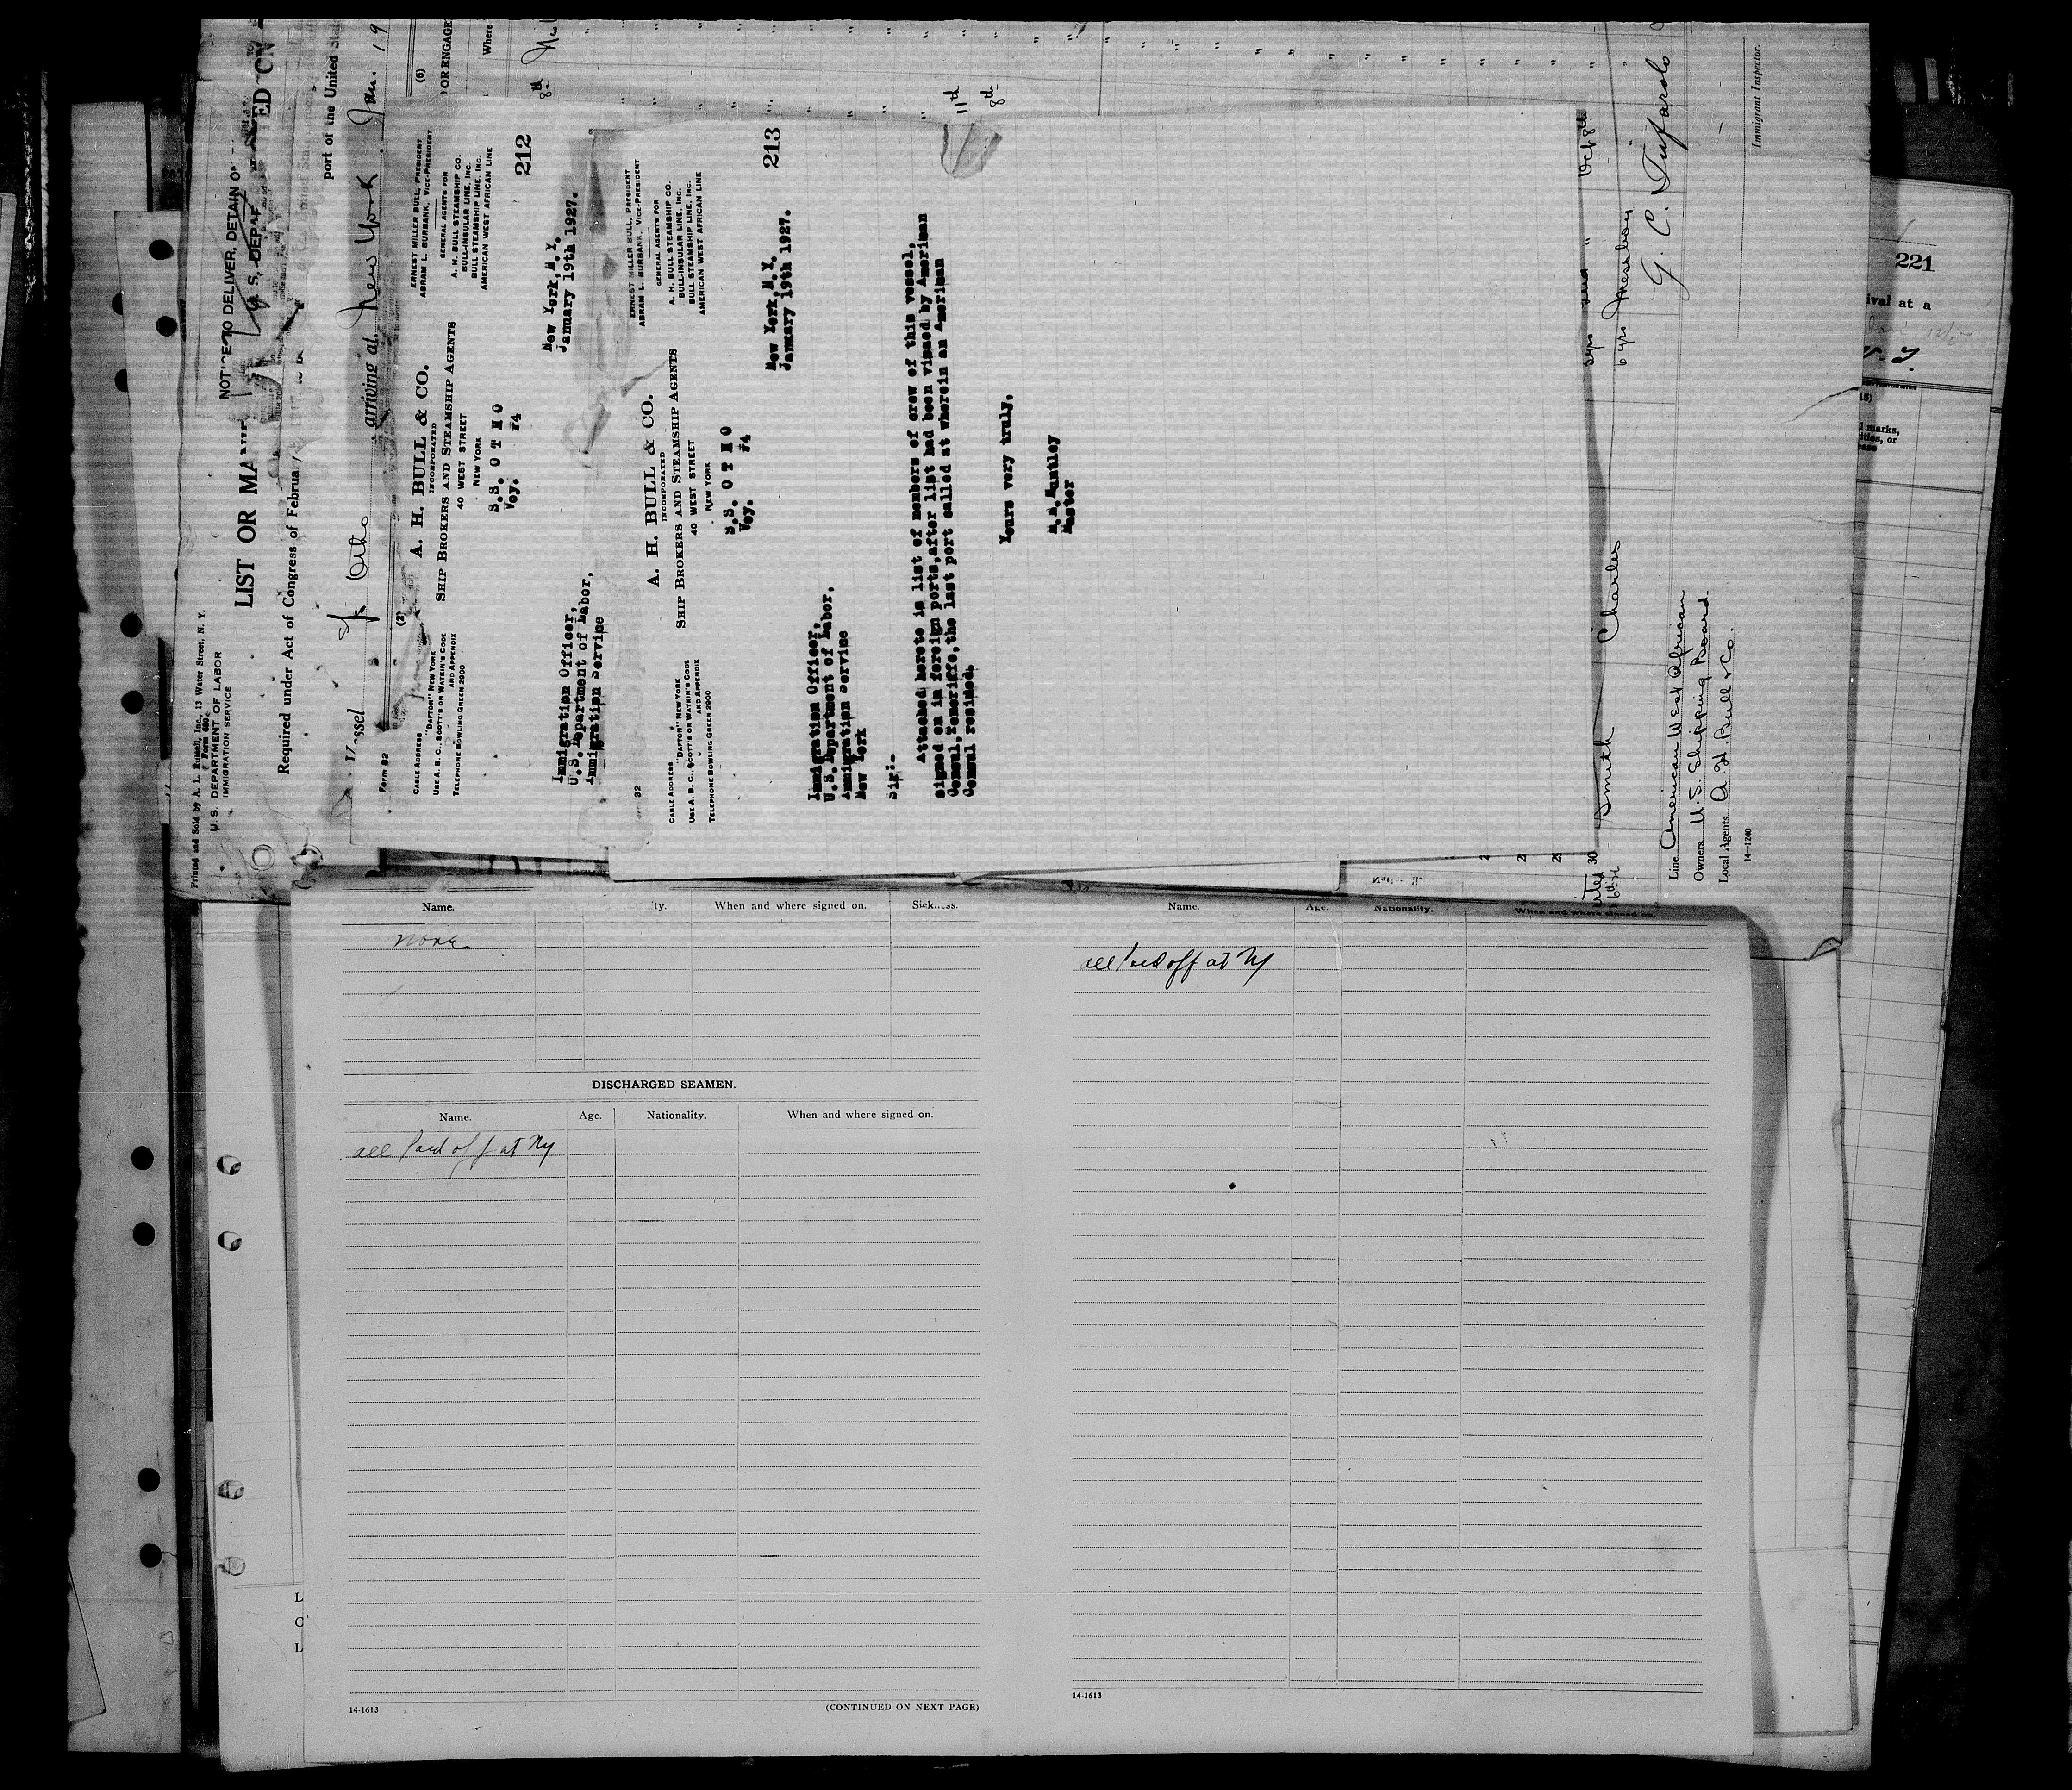 Printed and Sold by A. L. Russell, Inc., 13 Water Street, N. Y.
Form 680
U. S. DEPARTMENT OF LABOR
IMMIGRATION SERVICE
NOTICE TO DELIVER, DETAIN O
U. S. DEPAR
LIST OR MA
ED ON
Required under Act of Congress of Februa
port of the United Stat
Vessel
Otho
arriving at
New York
Jan. 19
(2)
(6)
OR ENGAGE
Where
8th
Form 32
CABLE ADDRESS
"DAFTON" NEW YORK
USE A. B. C., SCOTT'S OR WATKIN'S CODE
AND APPENDIX
TELEPHONE BOWLING GREEN 2900
A. H. BULL & CO.
INCORPORATED
SHIP BROKERS AND STEAMSHIP AGENTS
40 WEST STREET
NEW YORK
ERNEST MILLER BULL, PRESIDENT
ABRAM L. BURBANK, VICE-PRESIDENT
GENERAL AGENTS FOR
A. H. BULL STEAMSHIP CO.
BULL-INSULAR LINE, INC.
BULL STEAMSHIP LINE, INC.
AMERICAN WEST AFRICAN LINE
212
S.S. O T H O
Voy. #4
New York,N.Y.
January 19th 1927.
Immigration Officer,
U.S.Department of Labor,
Immigration Service
32
CABLE ADDRESS
"DAFTON" NEW YORK
USE A. B. C., SCOTT'S OR WATKIN'S CODE
AND APPENDIX
TELEPHONE BOWLING GREEN 2900
A. H. BULL & CO.
INCORPORATED
SHIP BROKERS AND STEAMSHIP AGENTS
40 WEST STREET
NEW YORK
ERNEST MILLER BULL, PRESIDENT
ABRAM L. BURBANK, VICE-PRESIDENT
GENERAL AGENTS FOR
A. H. BULL STEAMSHIP CO.
BULL-INSULAR LINE, INC.
BULL STEAMSHIP LINE, INC.
AMERICAN WEST AFRICAN LINE
213
S.S. O T H O
Voy. #4
New York,N.Y.
January 19th 1927.
Immigration Officer,
U.S.Department of Labor,
Immigration Service
New York
Sir:-
Attached hereto is list of members of crew of this vessel,
signed on in foreign ports,after list had been visaed by American
Consul,Teneriffe,the last port called at wherein an American
Consul resided.
Yours very truly,
Master
11th
8th
30
Smith Charles
5 yrs
Oct 8th
6 yrs
Line American West African
Owners U.S. Shipping Board
Local Agents A. H. Bull & Co.
14-1240
Immigrant Inspector.
221
ival at a
(15)
l marks,
ities, or
ease
Name.
ty.
When and where signed on.
Sickness.
none
DISCHARGED SEAMEN.
Name. Age. Nationality. When and where signed on.
all Paid off at Ny
14-1613
(CONTINUED ON NEXT PAGE)
Name. Age. Nationality. When and where signed on.
all Paid off at Ny
14-1613